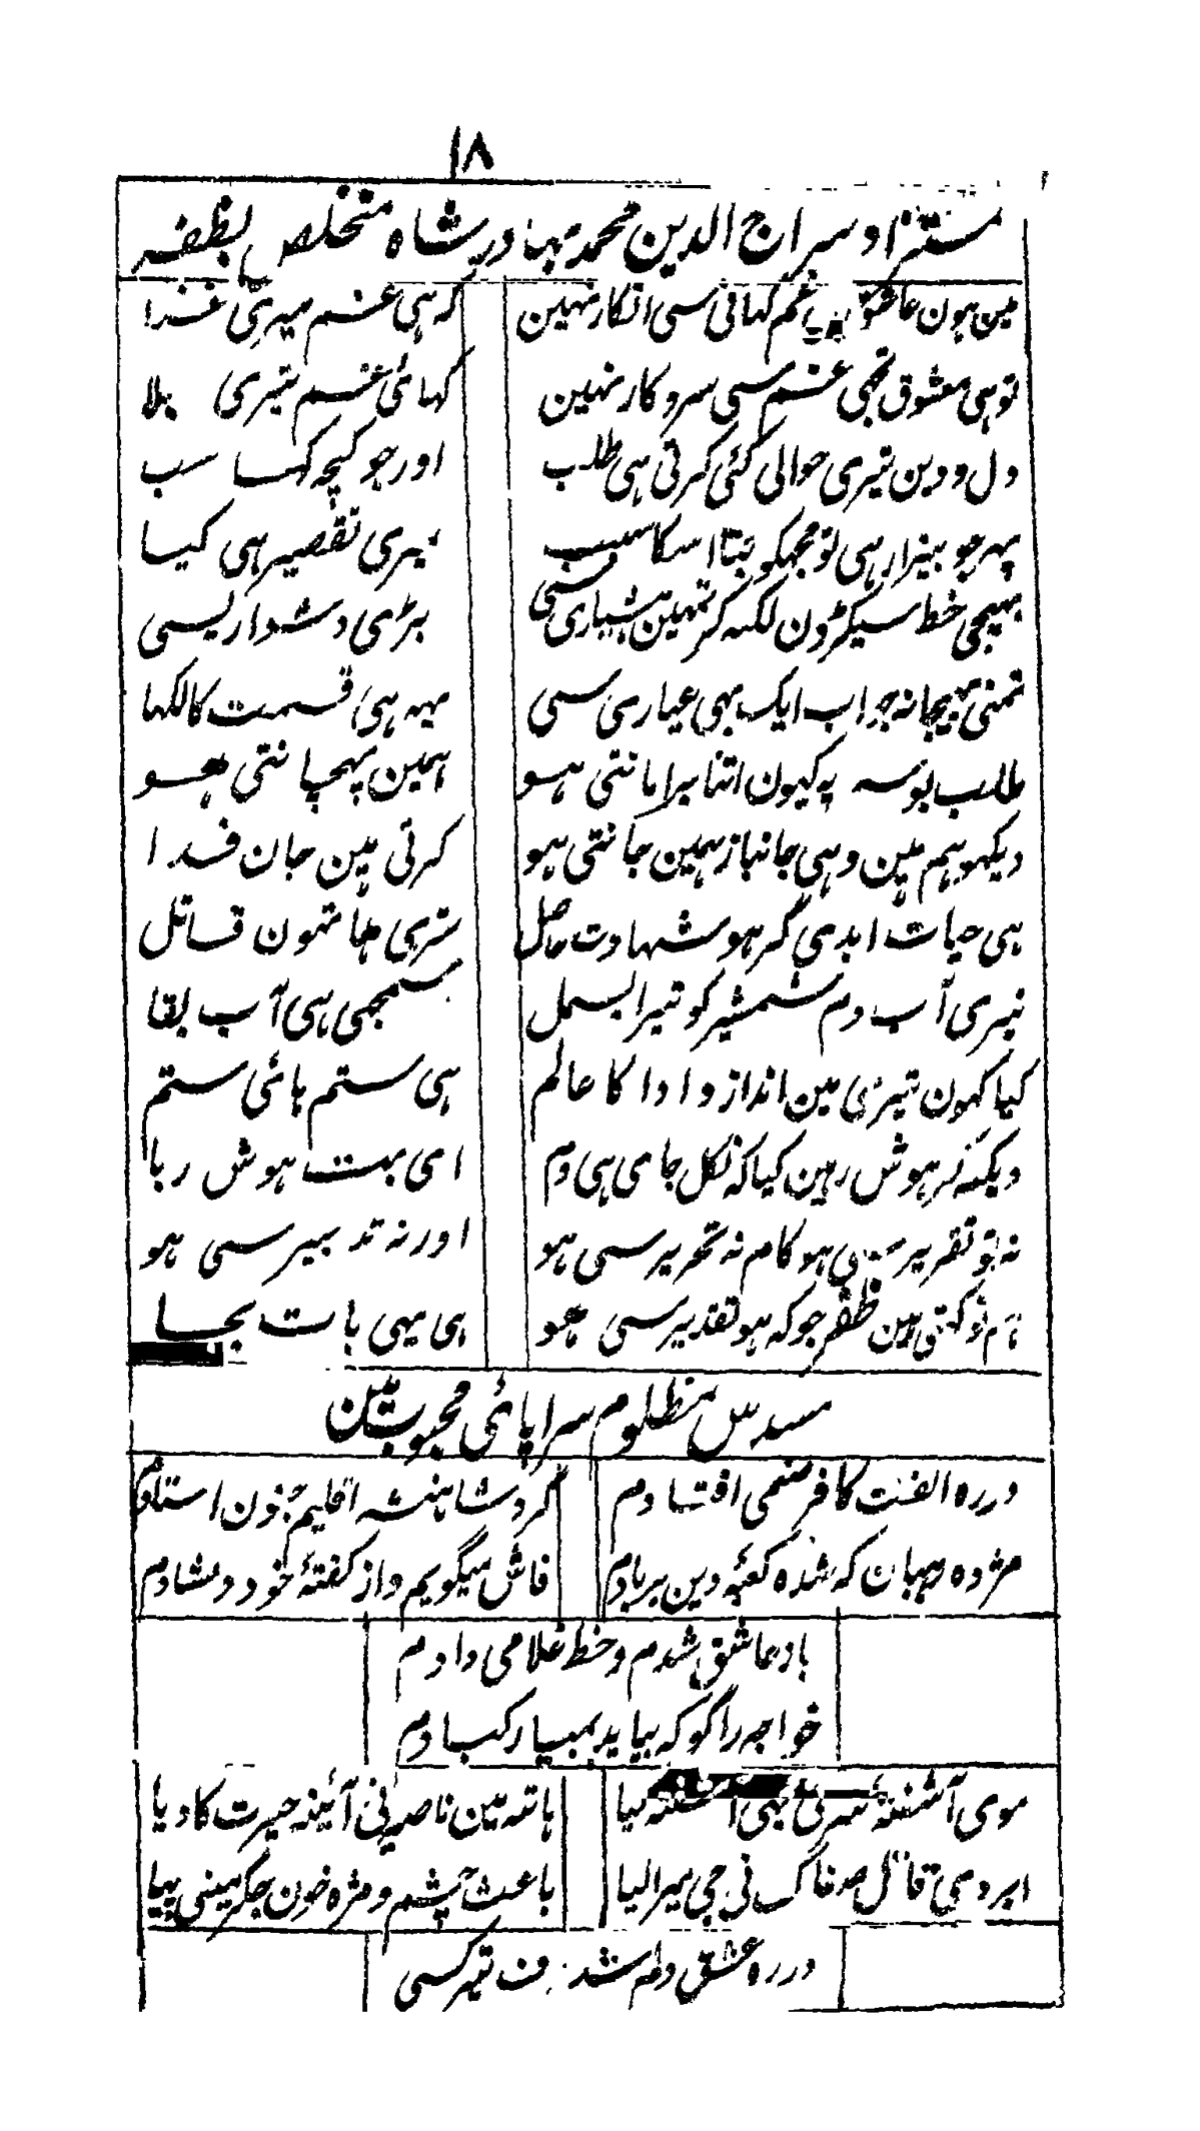 ۱۸
مستزاد سراج الدین محمد بہادر شاہ متخلص بظفر
مین ہون عاشق غم کہانی سی انکار نہین کہ ہی غم میری غذا
تو ہی معشوق تجہی غم سی سروکار نہین کہائی غم تیری بلا
دل و دین تیری حوالی کئی کرتی ہی طلب اور جو کچہہ کہا سب
پہر جو بیزار ہی تو مجہکو بتا اسکا سبب میری تقصیر ہی کیا
بہیجی خط سیکڑون لکہہ کر تمہین ہشیاری سی بڑی دشواریسی
تمنی بہیجا نہ جواب ایک بہی عیاری سی یہہ ہی قسمت کا لکہا
طلب بوسہ پہ کیون اتنا برا مانتی ہو ہمین پہچانتی ہو
دیکہو ہم ہین وہی جانباز ہمین جانتی ہو کرتی ہین جان فدا
ہی حیات ابدی گر ہو شہادت حاصل تری ہاتہون قاتل
تیری آب دم شمشیر کو تیرا بسمل سمجہی ہی آب بقا
کیا کہون تیری مین انداز و ادا کا عالم ہی ستم ہائی ستم
دیکہکر ہوش رہین کیا کہ نکل جای ہی دم ای بت ہوش ربا
نہ تو تقریر سی ہو کام نہ تحریر سی ہو اور نہ تدبیر سی ہو
ہم تو کہتی ہین ظفر جو کہ ہو تقدیر سی ہو ہی یہی بات بجا
مسدس مظلوم سراپائی محبوب مین
در رہ الفت کافر صنمی افتادم کرد شاہنشہ اقلیم جنون استادم
مژدہ رہبان کہ شدہ کعبۂ دین بربادم فاش میگویم و از گفتۂ خود دلشادم
باد عاشق شدم و خط غلامی دادم
خواجہ را گو کہ بیاید بمبارکبادم
موی آشفتہ نی بہی آشفتہ کیا ہاتہ مین ناصیہ نی آئینہ حیرت کا دیا
ابروی قاتل سفاک نی جی میرا لیا باعث چشم و مژہ خون جگر مینی پیا
در رہ عشق دلم شد تیر کسی